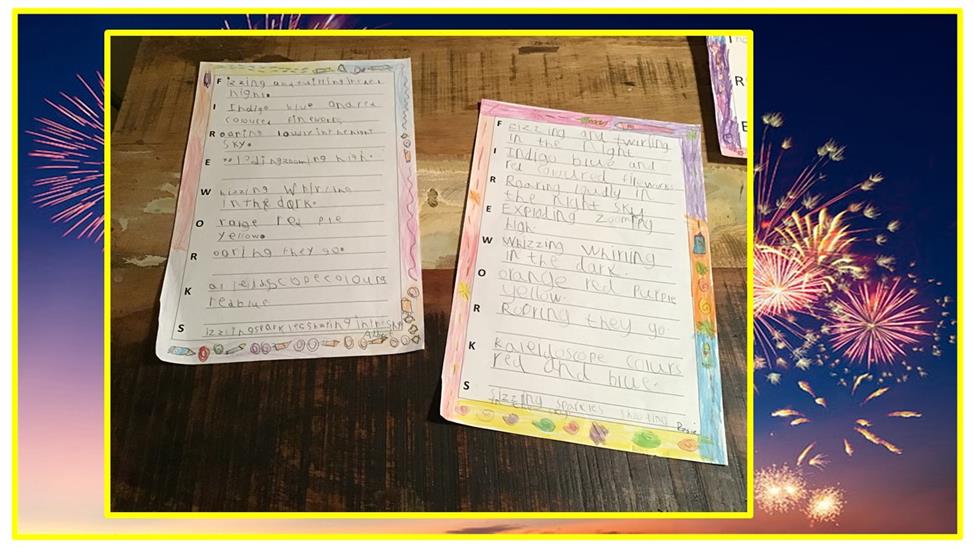 Fizzing and twirling in the
night.
Indigo blue and red
coloured firework
Roaring in the night
sky.
zooming high.
whizzing whirling
in the dark.
orange red
yellow.
Roaring they go.
Kaleidoscope colours
red blue
Sizzling sparkles
Fizzing and twirling
in the night
Indigo blue and
red coloured firework
Roaring loudly in
the night sky
Exploding zooming
high.
Whizzing Whirling
in the dark.
orange red purple
yellow.
Roaring they go.
Kaleidoscope colours
red and blue.
Sizzling sparkles shooting
Rosie
R